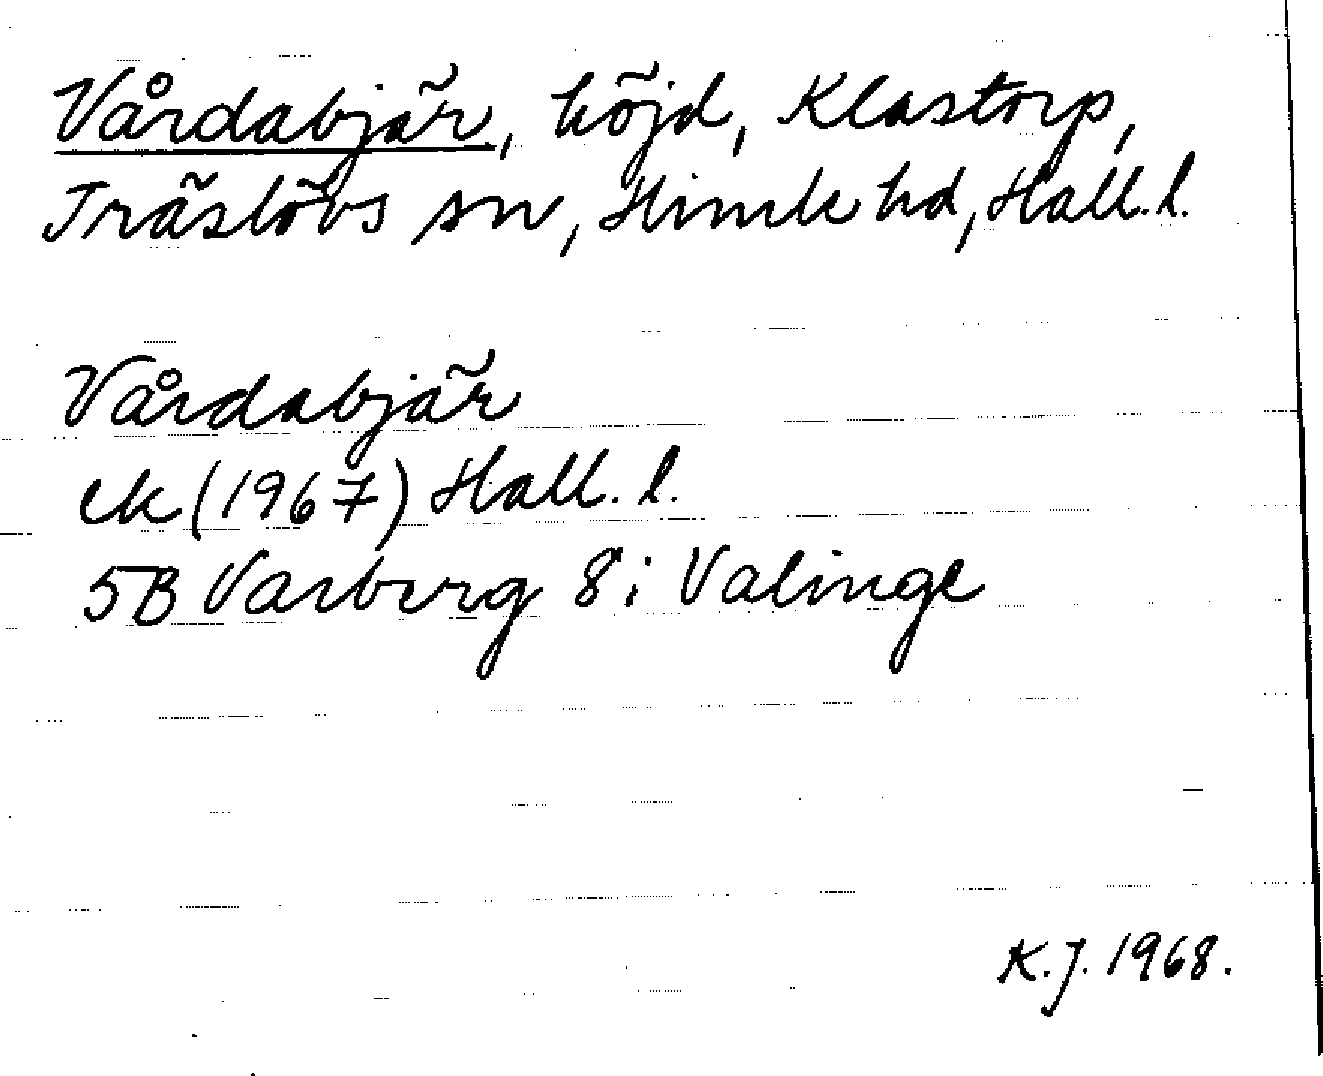 Vårdabjär, höjd, Klastorp,
Träslövs sn, Himle hd, Hall. l.
Vårdabjär
ek (1967) Hall. l.
5B Varberg 8i Valinge
K.J. 1968.